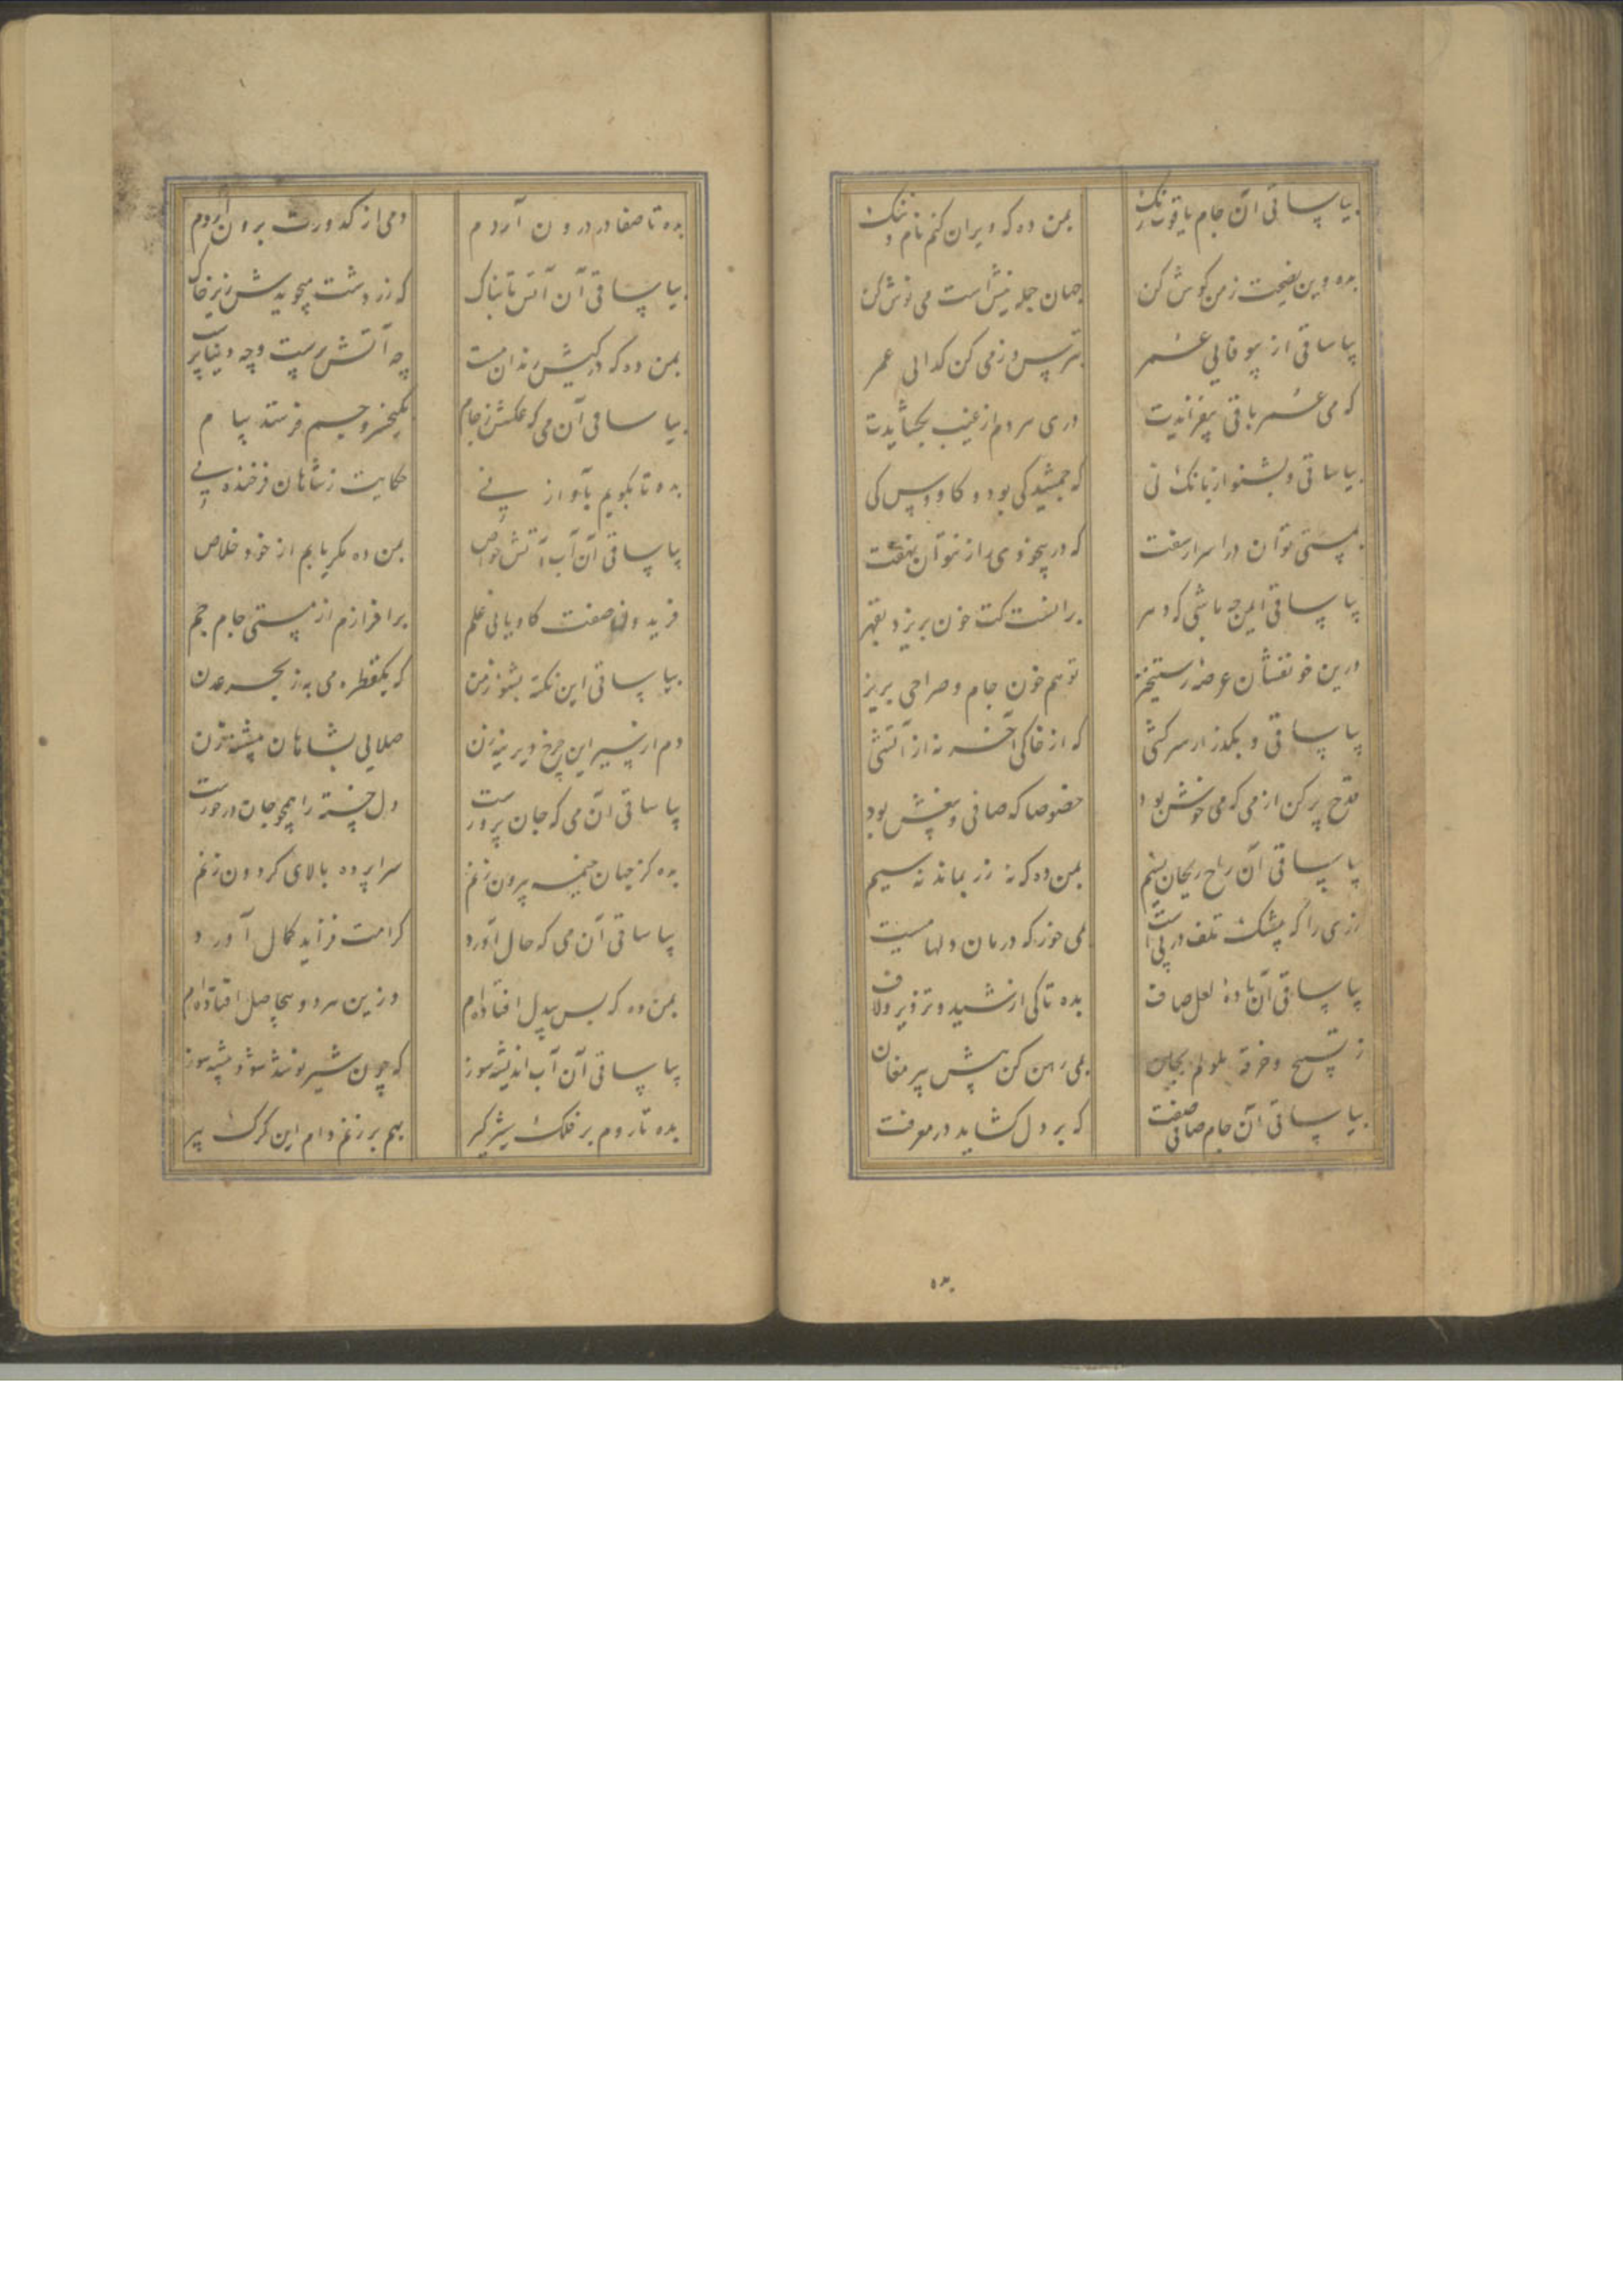 بیا ساقی آن جام یاقوت رنگ بمن ده که ویران کنم نام و ننگ
بده وین نصیحت ز من گوش کن جهان جمله نیش است می نوش کن
بیا ساقی از بیوفایی عمر بترس و ز می کن گدایی عمر
که می عمر باقی بیفزایدت دری هر دم از غیب بگشایدت
بیا ساقی و بشنو از بانگ نی که جمشید کی بود و کاووس کی
بمستی توان در اسرار سفت که در بیخودی راز نتوان نهفت
بیا ساقی ایمن چه باشی که دهر بر آنست کت خون بریزد بقهر
درین خونفشان عرصه رستخیز تو هم خون جام و صراحی بریز
بیا ساقی و بگذر از سرکشی که از خاکی آخر نه از آتشی
قدح پر کن از می که می خوش بود خصوصا که صافی و بیغش بود
بیا ساقی آن راح ریحان نسیم بمن ده که نه زر بماند نه سیم
زری را که بیشک تلف در پی است می خور که درمان دلها می است
بیا ساقی آن باده لعل صاف بده تا کی از شید و تزویر و لاف
ز تسبیح و خرقه ملولم بمی رهن کن پیش پیر مغان
بیا ساقی آن جام صافی صفت که بر دل گشاید در معرفت
بده
بده تا صفا در درون آردم دمی از کدورت برون آردم
بیا ساقی آن آتش تابناک که زردشت میجویدش زیر خاک
بمن ده که در کیش رندان مست چه آتش پرست و چه دنیا پرست
بیا ساقی آن می که عکسش ز جام بکیخسرو و جم فرستد پیام
بده تا بگویم بآواز نی حکایت ز شاهان فرخنده پی
بیا ساقی آن آب آتش خواص بمن ده مگر یابم از خود خلاص
فریدون صفت کاویانی علم برافرازم از مستی جام جم
بیا ساقی این نکته بشنو ز من که یک قطره می به ز بحر عدن
دم از سیر این چرخ دیرینه زن صلایی بشاهان پیشینه زن
بیا ساقی آن می که جان پرورست دل خسته را همچو جان درخورست
بده کز جهان خیمه بیرون زنم سراپرده بالای گردون زنم
بیا ساقی آن می که حال آورد کرامت فزاید کمال آورد
بمن ده که بس بیدل افتاده ام وزین هر دو بیحاصل افتاده ام
بیا ساقی آن آب اندیشه سوز که چون شیر نوشد شود بیشه سوز
بده تا روم بر فلک شیرگیر بهم برزنم دام این گرگ پیر